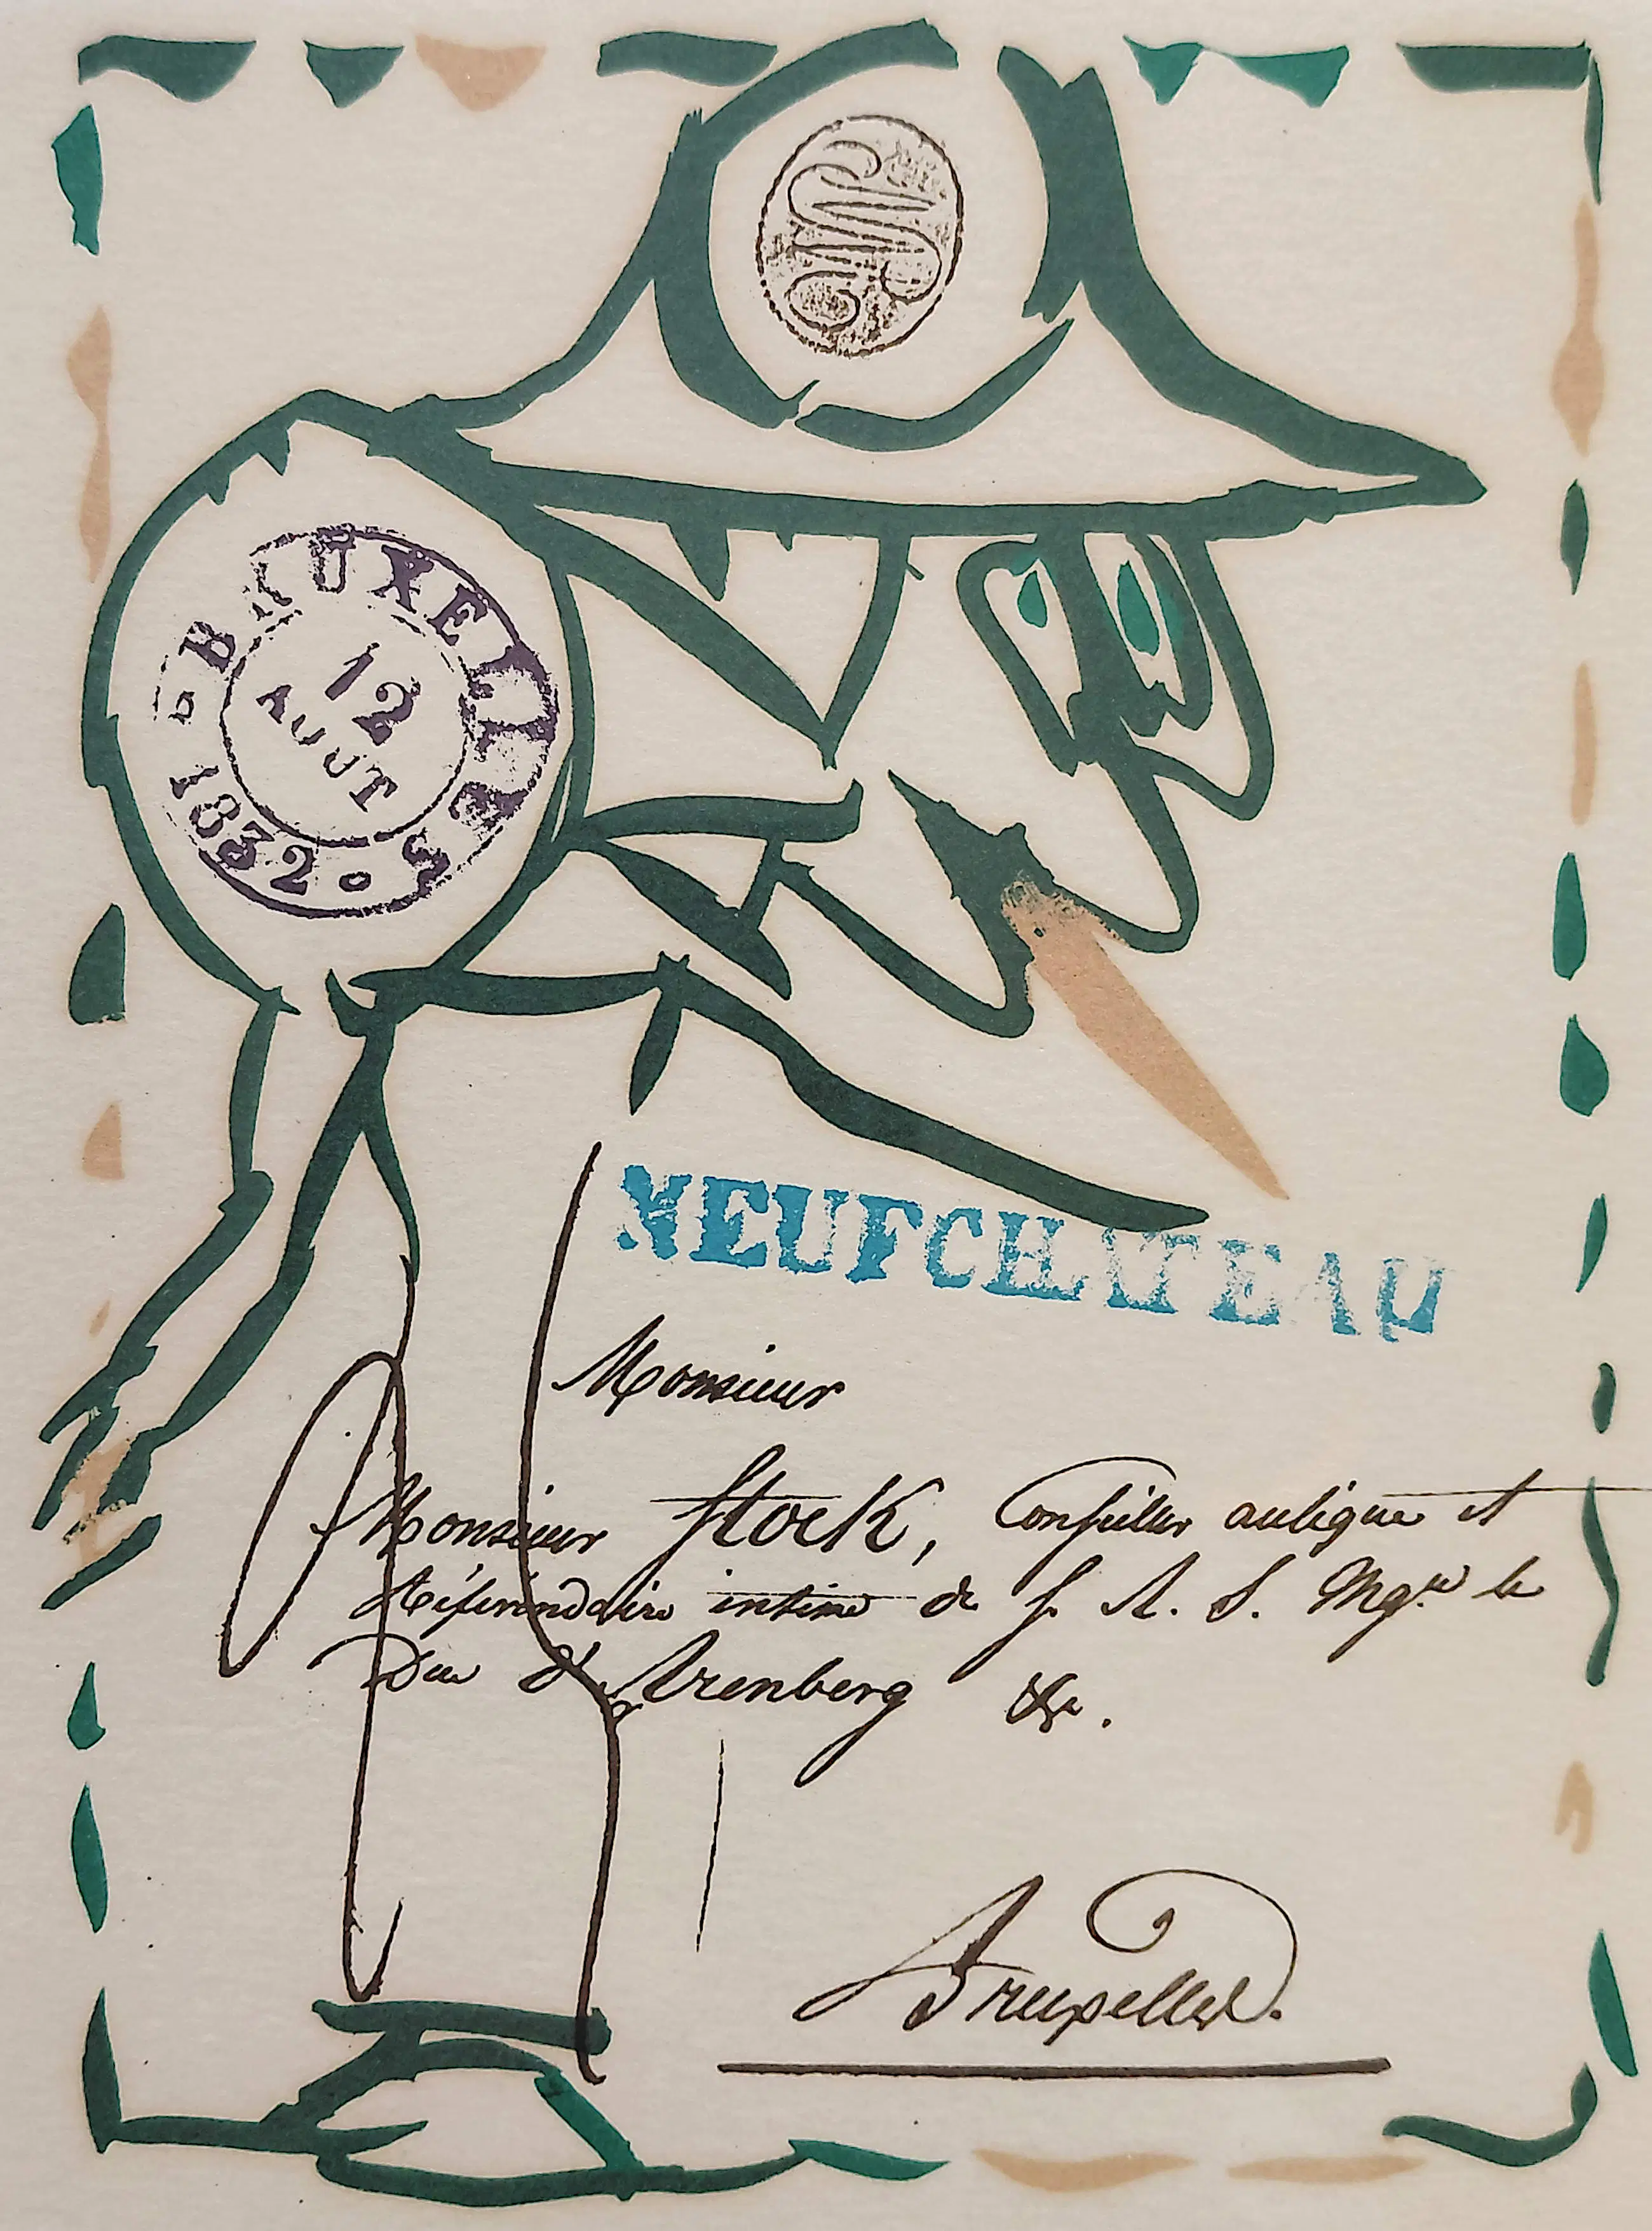 BRUXELLES
12
AOUT
1832
NEUFCHATEAU
Monsieur
Monsieur Stock, Conseiller aulique et
Référendaire intime de S. A. S. Mgr le
Duc d'Arenberg &a.
Bruxelles.